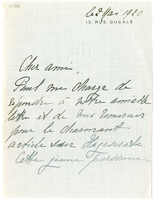 le 2 Mai 1920
15, RUE DUCALE
Cher ami,
Paul me charge de
répondre à votre aimable
lettre et de vous remercier
pour le charmant
article sur
cette jeune personne